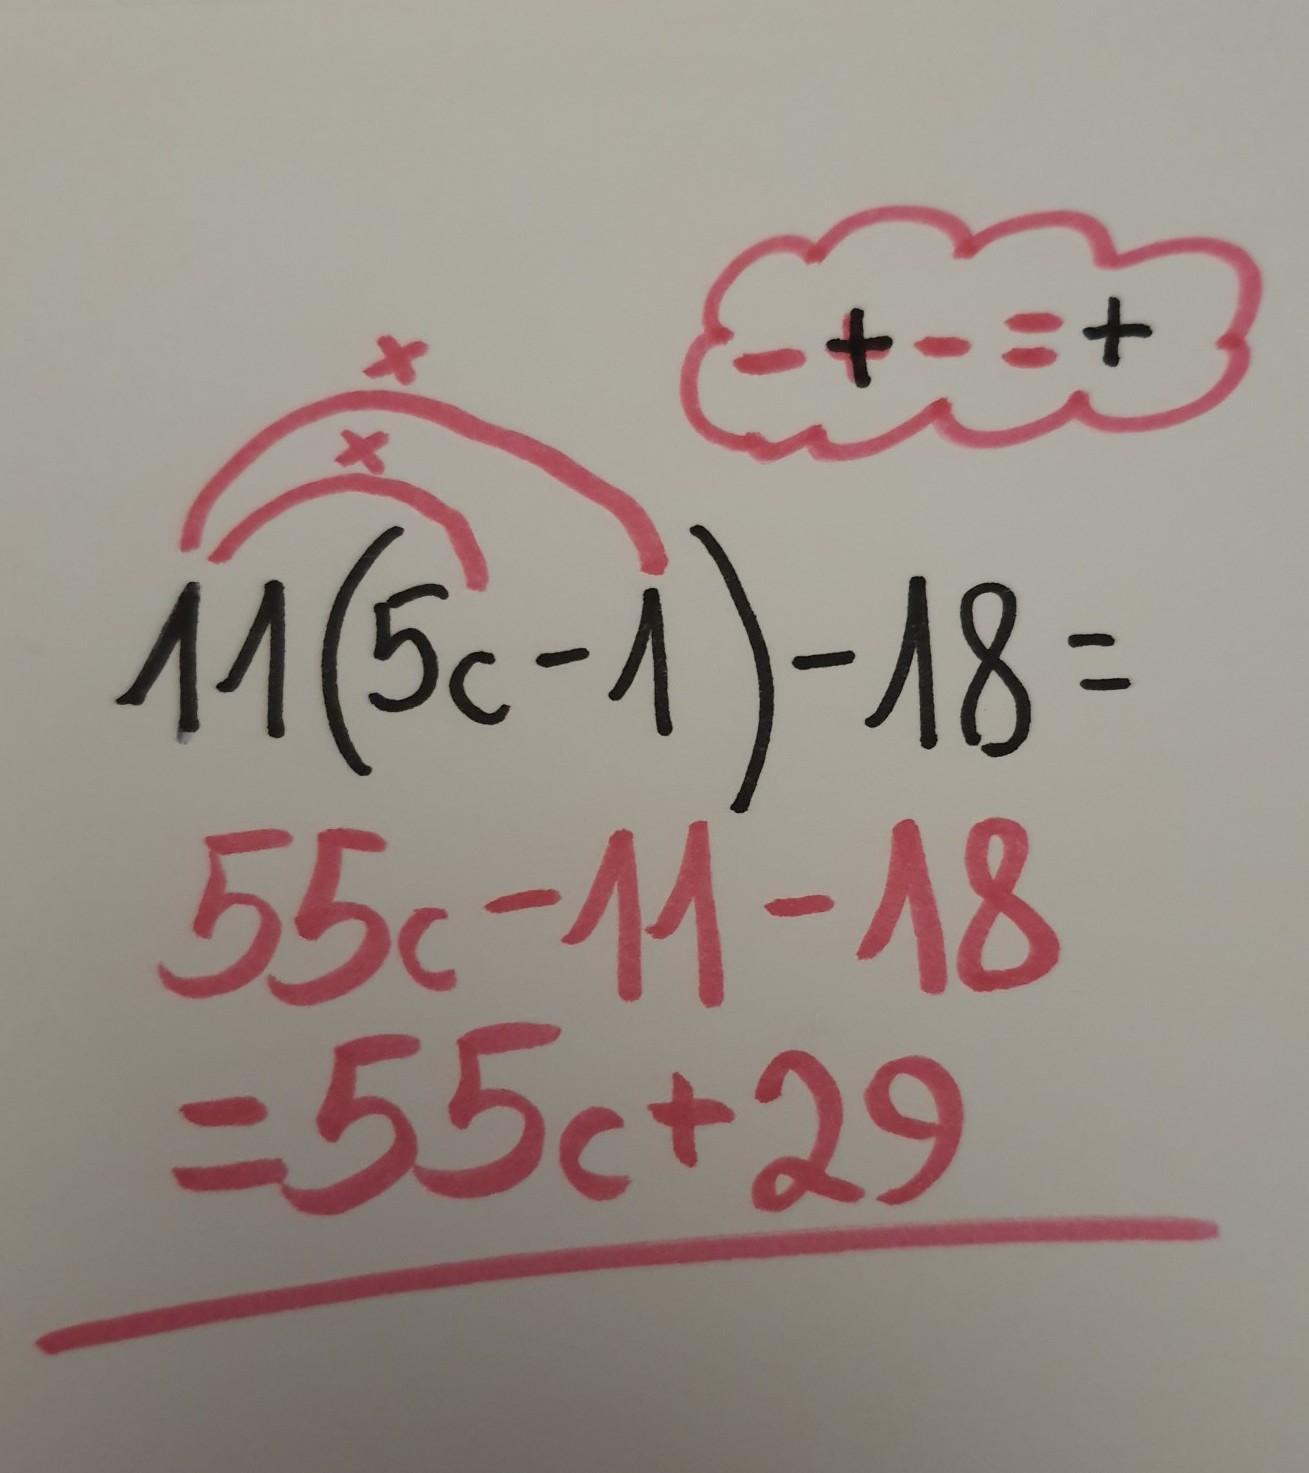 - + - = +
x
x
11(5c-1)-18=
55c-11-18
=55c+29